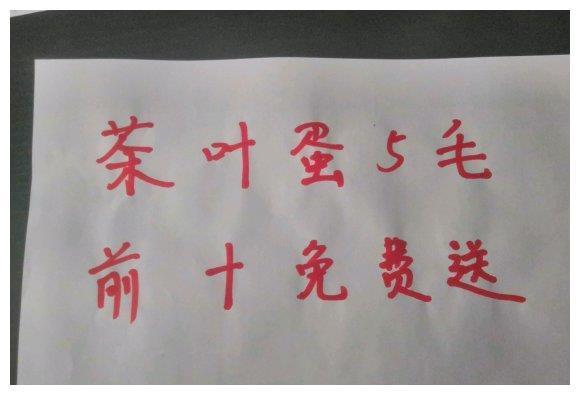 茶叶蛋5毛
前十免费送